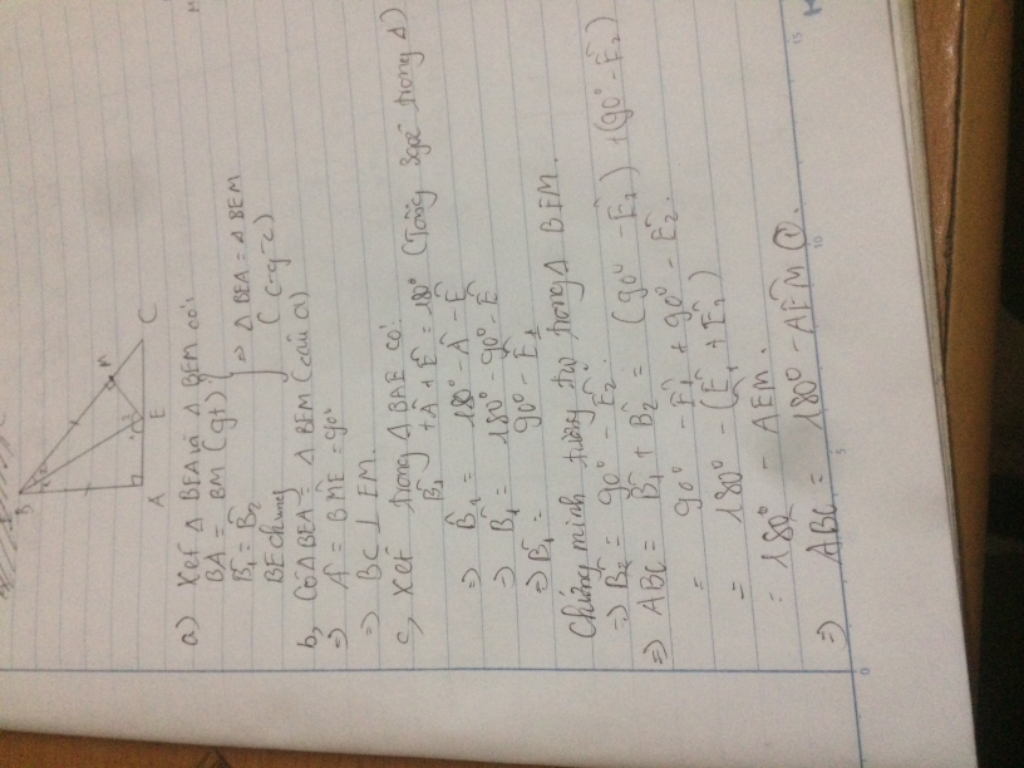 B
M
A
E
C
a) Xét Δ BEA và Δ BEM có:
BA = BM (gt)
B̂₁ = B̂₂
BE chung
} => Δ BEA = Δ BEM
(c-g-c)
b, Có Δ BEA = Δ BEM (câu a)
=> Â = BM̂E = 90°
=> BC ⊥ EM.
c, Xét trong Δ BAE có:
B̂₁ + Â + Ê = 180° (Tổng 3 góc trong Δ)
=> B̂₁ = 180° - Â - Ê
=> B̂₁ = 180° - 90° - Ê
=> B̂₁ = 90° - Ê₁
Chứng minh tương tự trong Δ BEM.
=> B̂₂ = 90° - Ê₂.
=> ABC = B̂₁ + B̂₂ = (90° - Ê₁) + (90° - Ê₂)
= 90° - Ê₁ + 90° - Ê₂.
= 180° - (Ê₁ + Ê₂)
= 180° - AEM.
=> ABC = 180° - AÊM ①.